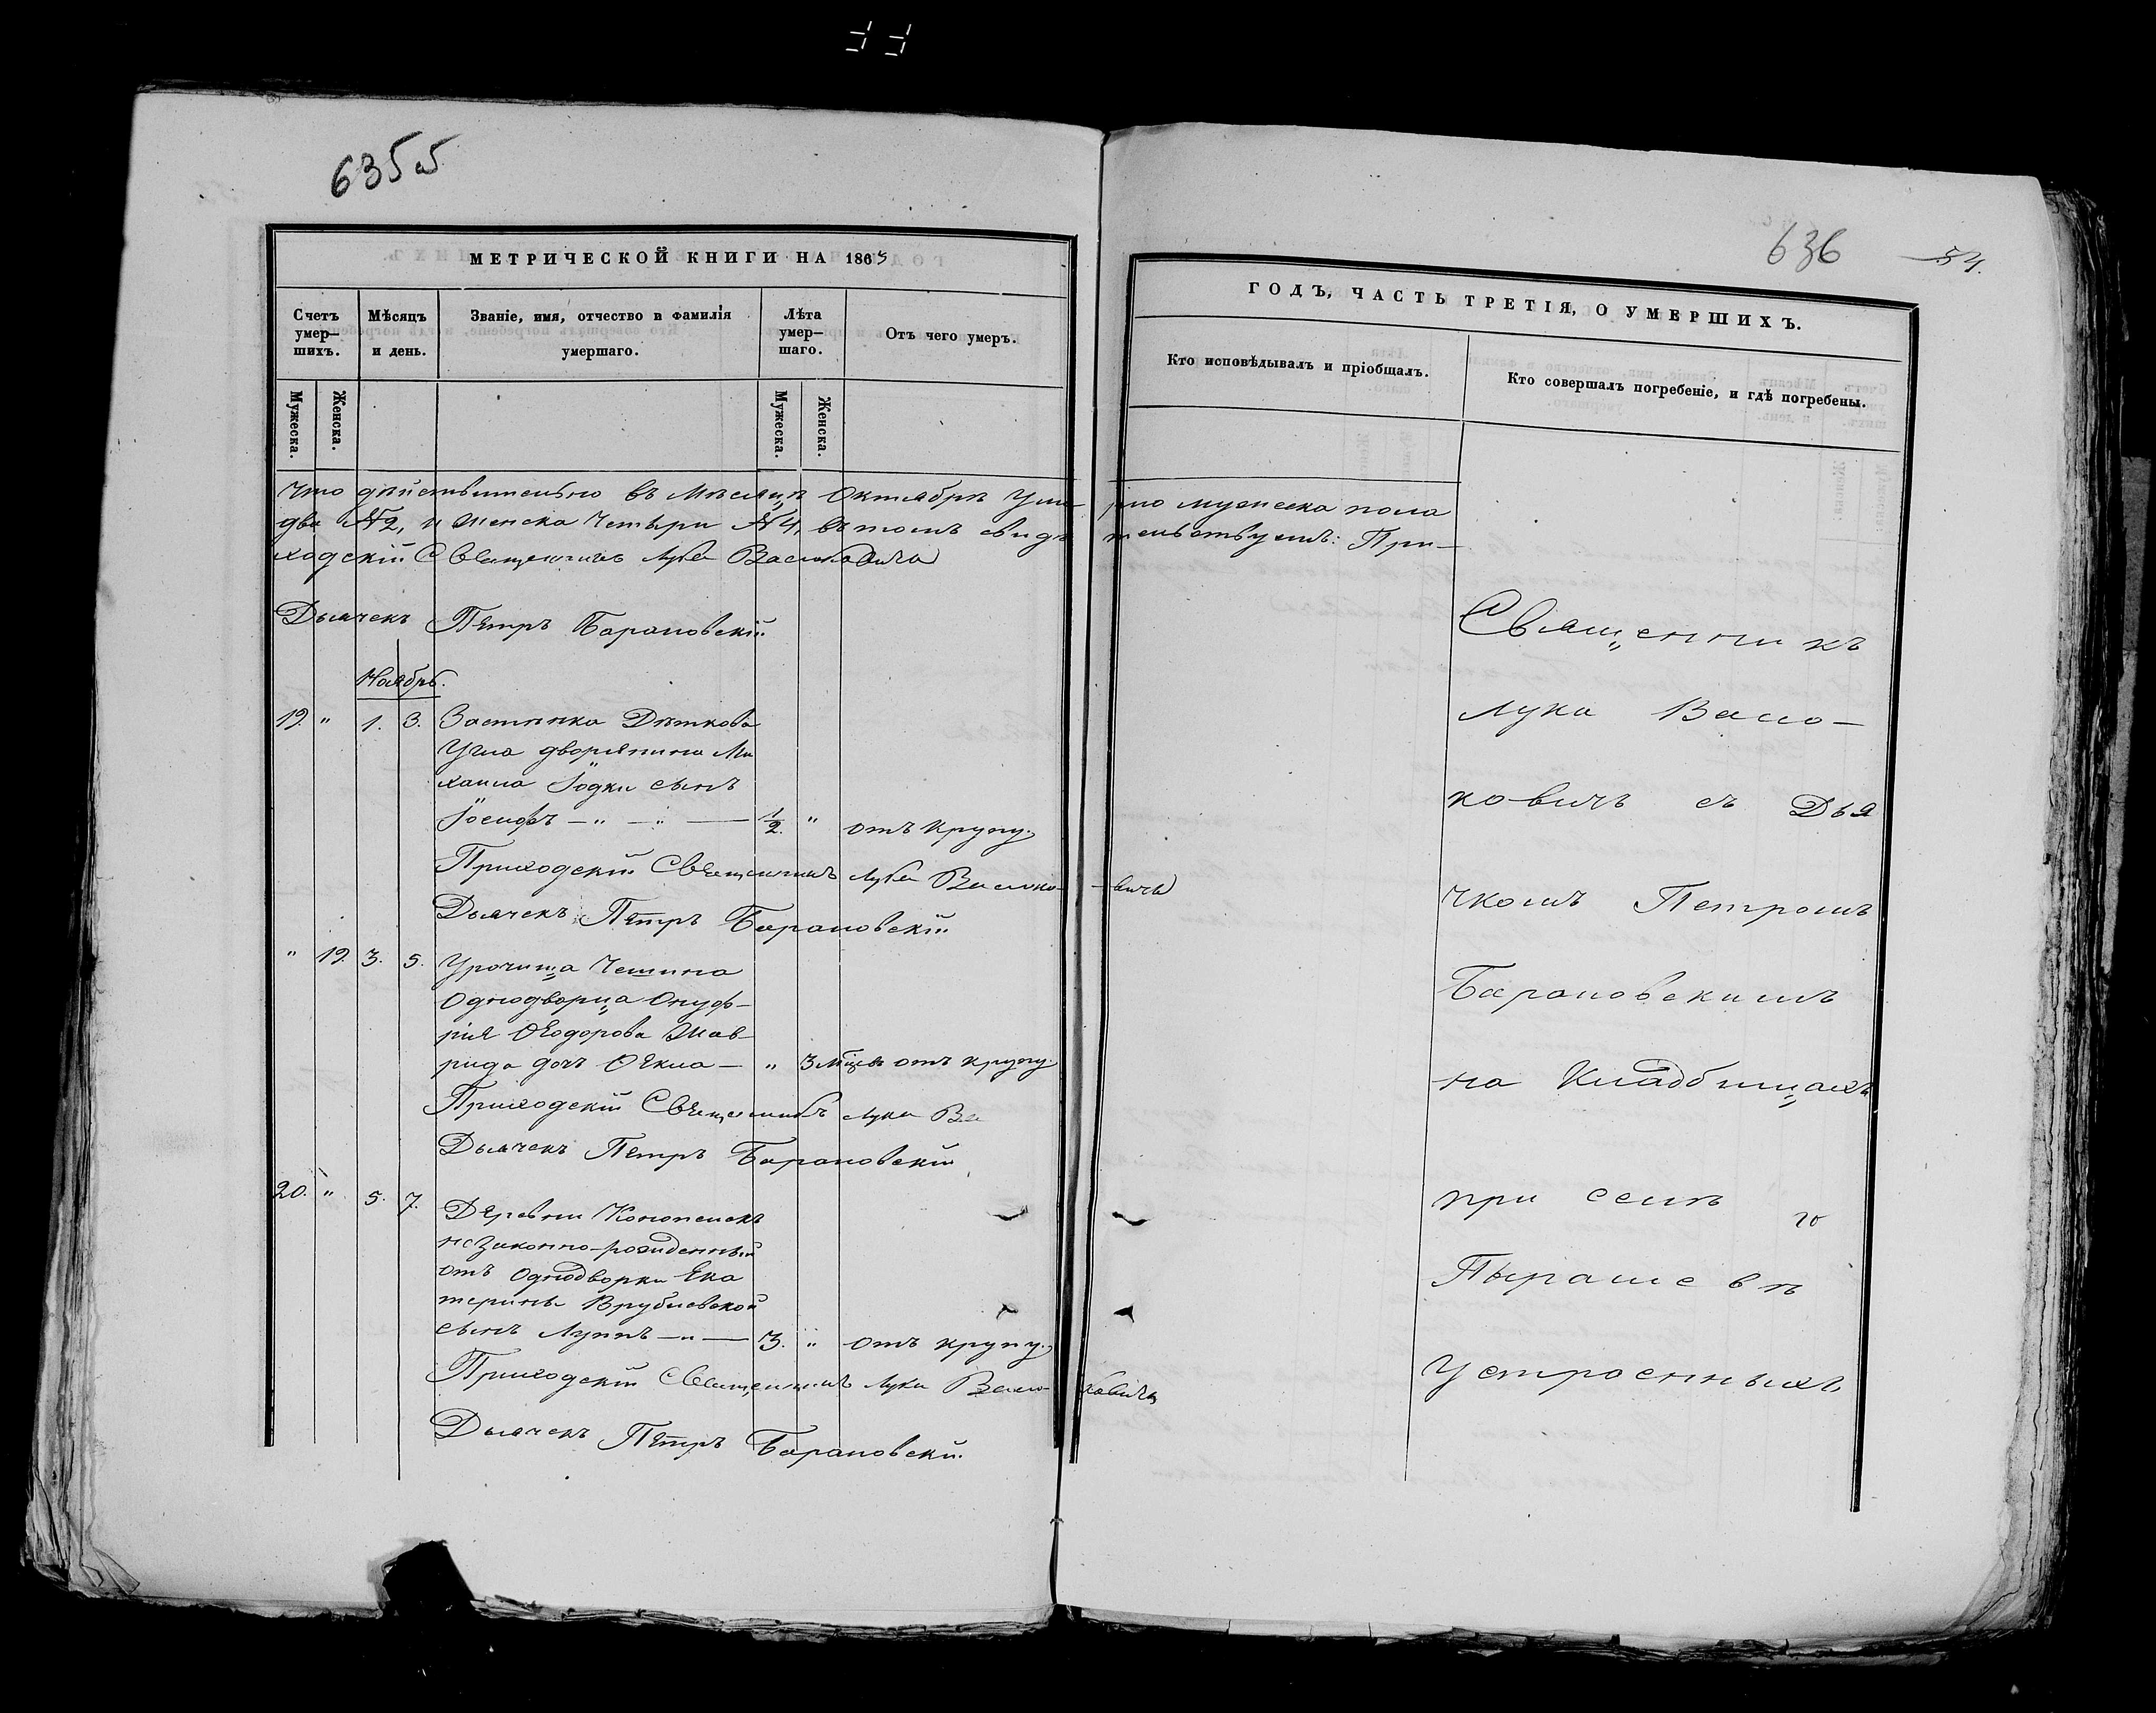 635 об
МЕТРИЧЕСКОЙ КНИГИ НА 1865
Счетъ умер—шихъ.
Мѣсяцъ и день.
Званіе, имя, отчество и фамилія умершаго.
Лѣта умер—шаго.
Отъ чего умеръ.
Мужеска.
Женска.
Мужеска.
Женска.
что дѣйствительно въ мѣсяцѣ Октябрѣ уме-
два №2, и женска четыри №4, въ томъ свидѣ
ходскій Священникъ Лука Васюковичъ
Дьячекъ Петръ Барановскій
Ноябрь.
19. " 1. 3. Застѣнка Дѣткова
Угла дворянина Ми
хаила Іодки сынъ
Іосифъ — " — " — 1/2. " отъ крупу.
Приходскій Священникъ Лука Васюко-
Дьячекъ Петръ Барановскій
" 19. 3. 5. Урочища
Однодворца Онуф-
рія Ѳеодорова
рида дочь Ѳекла — " 3 мѣсяц. отъ крупу.
Приходскій Священникъ Лука Ва
Дьячекъ Петръ Барановскій
20. " 5. 7. Деревни Конопелекъ
незаконно-рожденный
отъ Однодворки Ека
терины Врублевской
сынъ Луппъ — " — 3. " отъ крупу.
Приходскій Священникъ Лука Васю-
Дьячекъ Петръ Барановскій
636
54.
ГОДЪ, ЧАСТЬ ТРЕТІЯ, О УМЕРШИХЪ.
Кто исповѣдывалъ и пріобщалъ.
Кто совершалъ погребеніе, и гдѣ погребены.
рло мужеска пола
тельствуемъ: При-
-вичъ
ковичъ
Священникъ
Лука Васю-
ковичъ съ Дья
чкомъ Петромъ
Барановскимъ
на Кладбищахъ
при селѣ
Пырашевѣ
устроенныхъ.